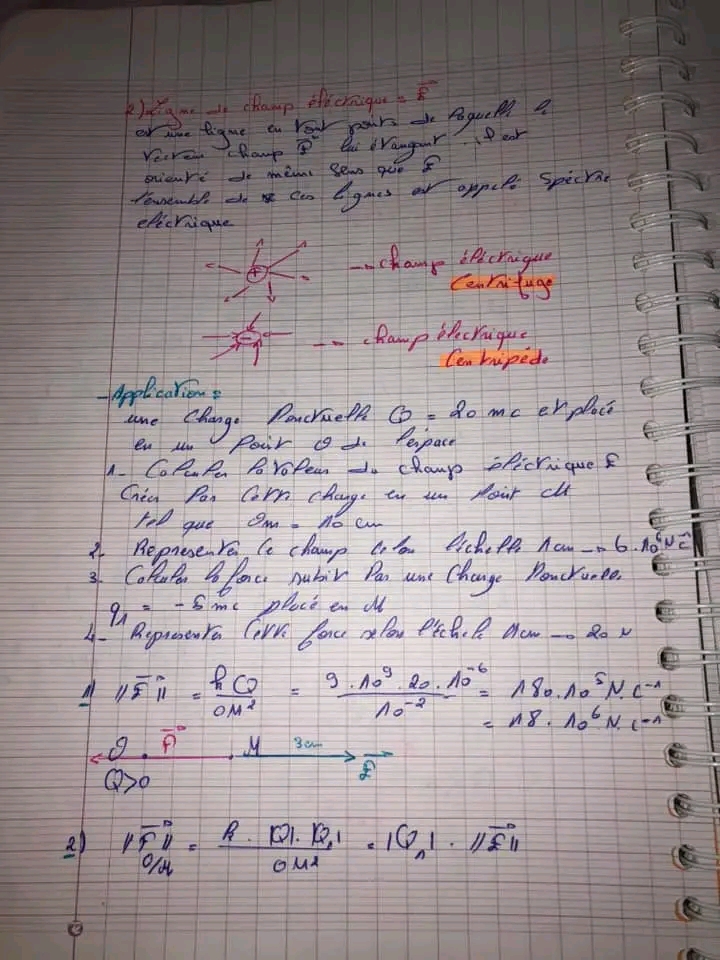 2) Ligne de champ éléctrique = E
est une ligne en tout points de laquelle le
vecteur champ E lui étangant. il est
orienté de même sens que E
l'ensemble de ces lignes est appelé Spéctre
eléctrique
+ → champ éléctrique
Centrifuge
- → champ électrique
Centripéde
- Application =
une Charge Ponctuelle Q = 20 mc et placé
en un point O de l'espace
1- Calculer la valeur du champ éléctrique E
Créer Par cette charge en un Point M
tel que Om = 10 cm
2- Representer le champ selon l'échelle 1cm → 6.10⁶ N C⁻¹
3- Calculer la force subit Par une Charge Ponctuelle
q₁ = -5 mc placé en M
4- Representer cette force selon l'échele 1cm → 20 N
1) ||E|| = kQ / OM² = 9.10⁹.20.10⁻⁶ / 10⁻² = 180.10⁵ N.C⁻¹
= 18.10⁶ N.C⁻¹
O F M 3cm E
Q>0
2) ||F|| O/M = k.|Q|.|Q₁| / OM² = |Q₁|.||E||